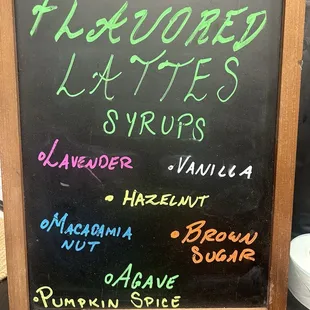 FLAVORED
LATTES
SYRUPS
•LAVENDER
•VANILLA
•HAZELNUT
•MACADAMIA
NUT
•BROWN
SUGAR
•AGAVE
•PUMPKIN SPICE